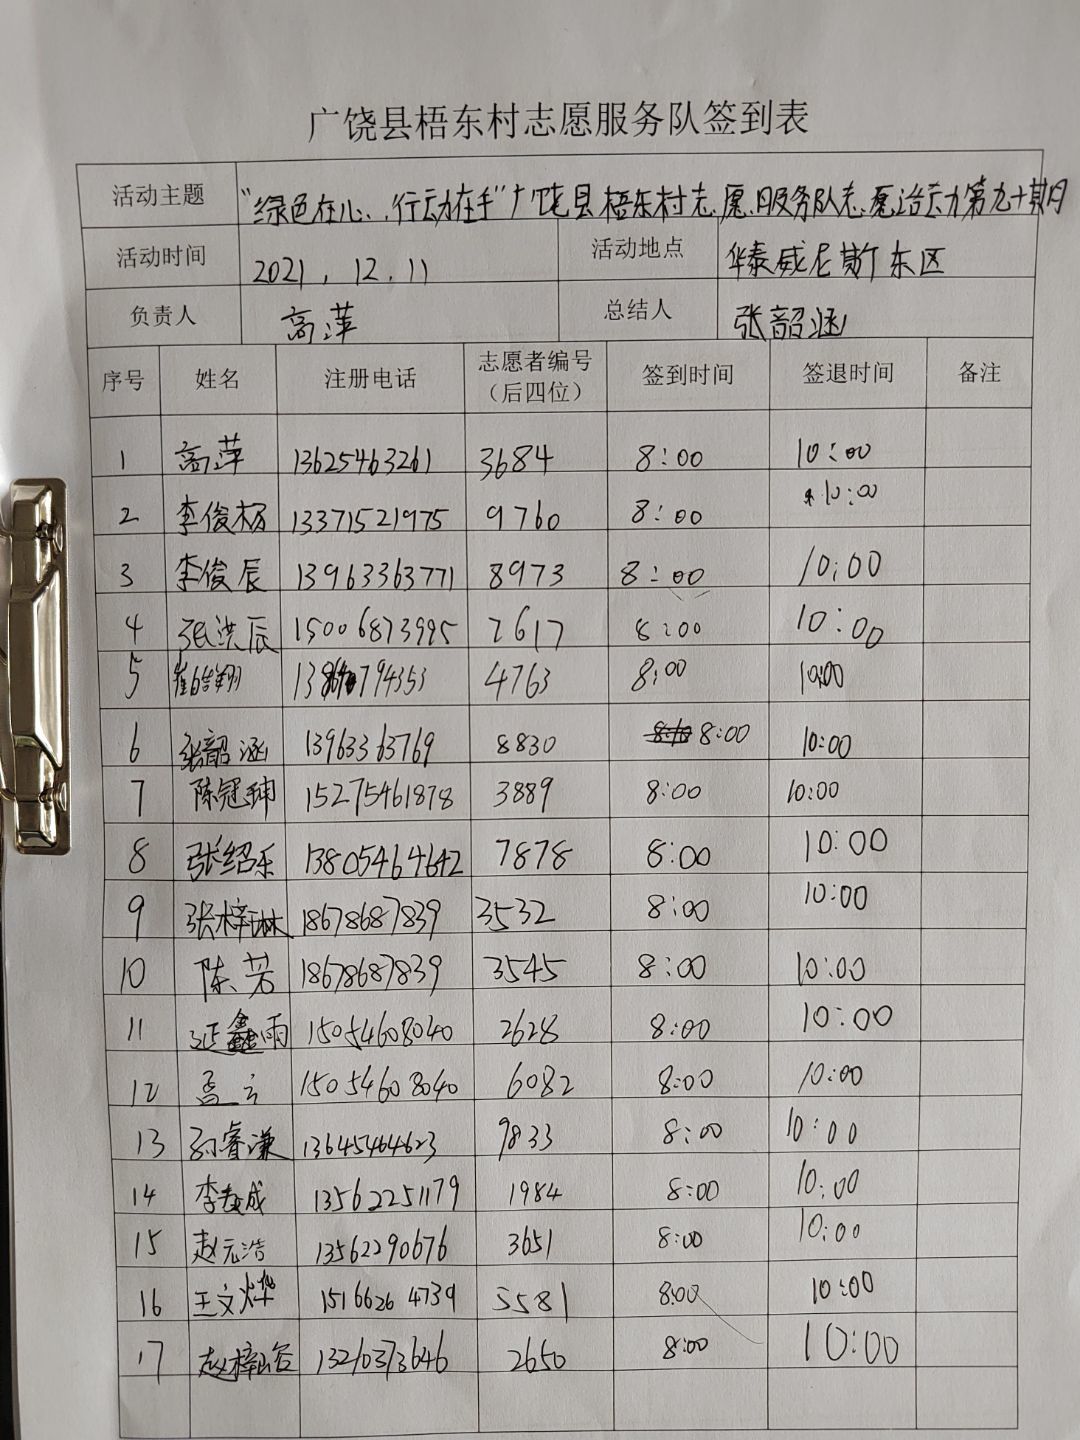 广饶县梧东村志愿服务队签到表
活动主题 “绿色在心,行动在手”广饶县梧东村志愿服务队志愿活动第九十期月
活动时间 2021.12.11 活动地点 华泰威尼斯东区
负责人 高萍 总结人 张韶涵
序号 姓名 注册电话 志愿者编号(后四位) 签到时间 签退时间 备注
1 高萍 13625463261 3684 8:00 10:00
2 李俊杨 13371521975 9760 8:00 10:00
3 李俊辰 13963363771 8973 8:00 10:00
4 张洪辰 15006873995 2617 8:00 10:00
5 4763 8:00 10:00
6 张韶涵 13963363769 8830 8:00 10:00
7 陈冠珅 15275461878 3889 8:00 10:00
8 张绍乐 13805464642 7878 8:00 10:00
9 张梓琳 18678687839 3532 8:00 10:00
10 陈芳 18678687839 3545 8:00 10:00
11 延鑫雨 15054608040 2628 8:00 10:00
12 孟云 15054608040 6082 8:00 10:00
13 孙睿谦 13645464623 9833 8:00 10:00
14 李 成 13562251179 1984 8:00 10:00
15 赵元浩 13562290676 3651 8:00 10:00
16 王文烨 15166264739 5581 8:00 10:00
17 赵梓 13210373646 2650 8:00 10:00